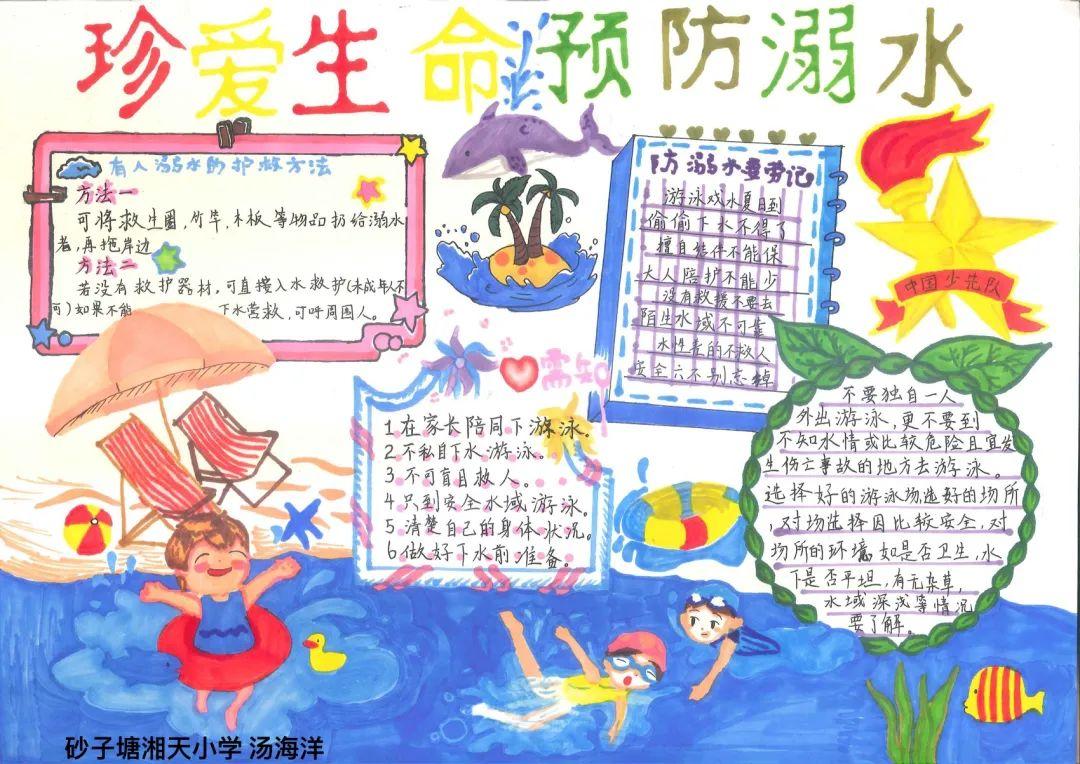 珍爱生命预防溺水
有人溺水的护救方法
方法一
可将救生圈,竹竿,木板等物品扔给溺水
者,再拖岸边
方法二
若没有救护器材,可直接入水救护(未成年人不
可)如果不能 下水营救,可呼周围人。
防溺水要劳记
游泳戏水夏日到
偷偷下水不得了
擅自结伴不能保
大人陪护不能少
没有救援不要去
陌生水域不可靠
水性差的不救人
安全六不别忘掉
中国少先队
需知
1.在家长陪同下游泳。
2.不私自下水游泳。
3.不可盲目救人。
4.只到安全水域游泳。
5.清楚自己的身体状况。
6.做好下水前准备。
不要独自一人
外出游泳,更不要到
不知水情或比较危险且宜发
生伤亡事故的地方去游泳。
选择好的游泳场,选好的场所
,对场选择因比较安全,对
场所的环境,如是否卫生,水
下是否平坦,有无杂草,
水域深浅等情况
要了解。
砂子塘湘天小学 汤海洋